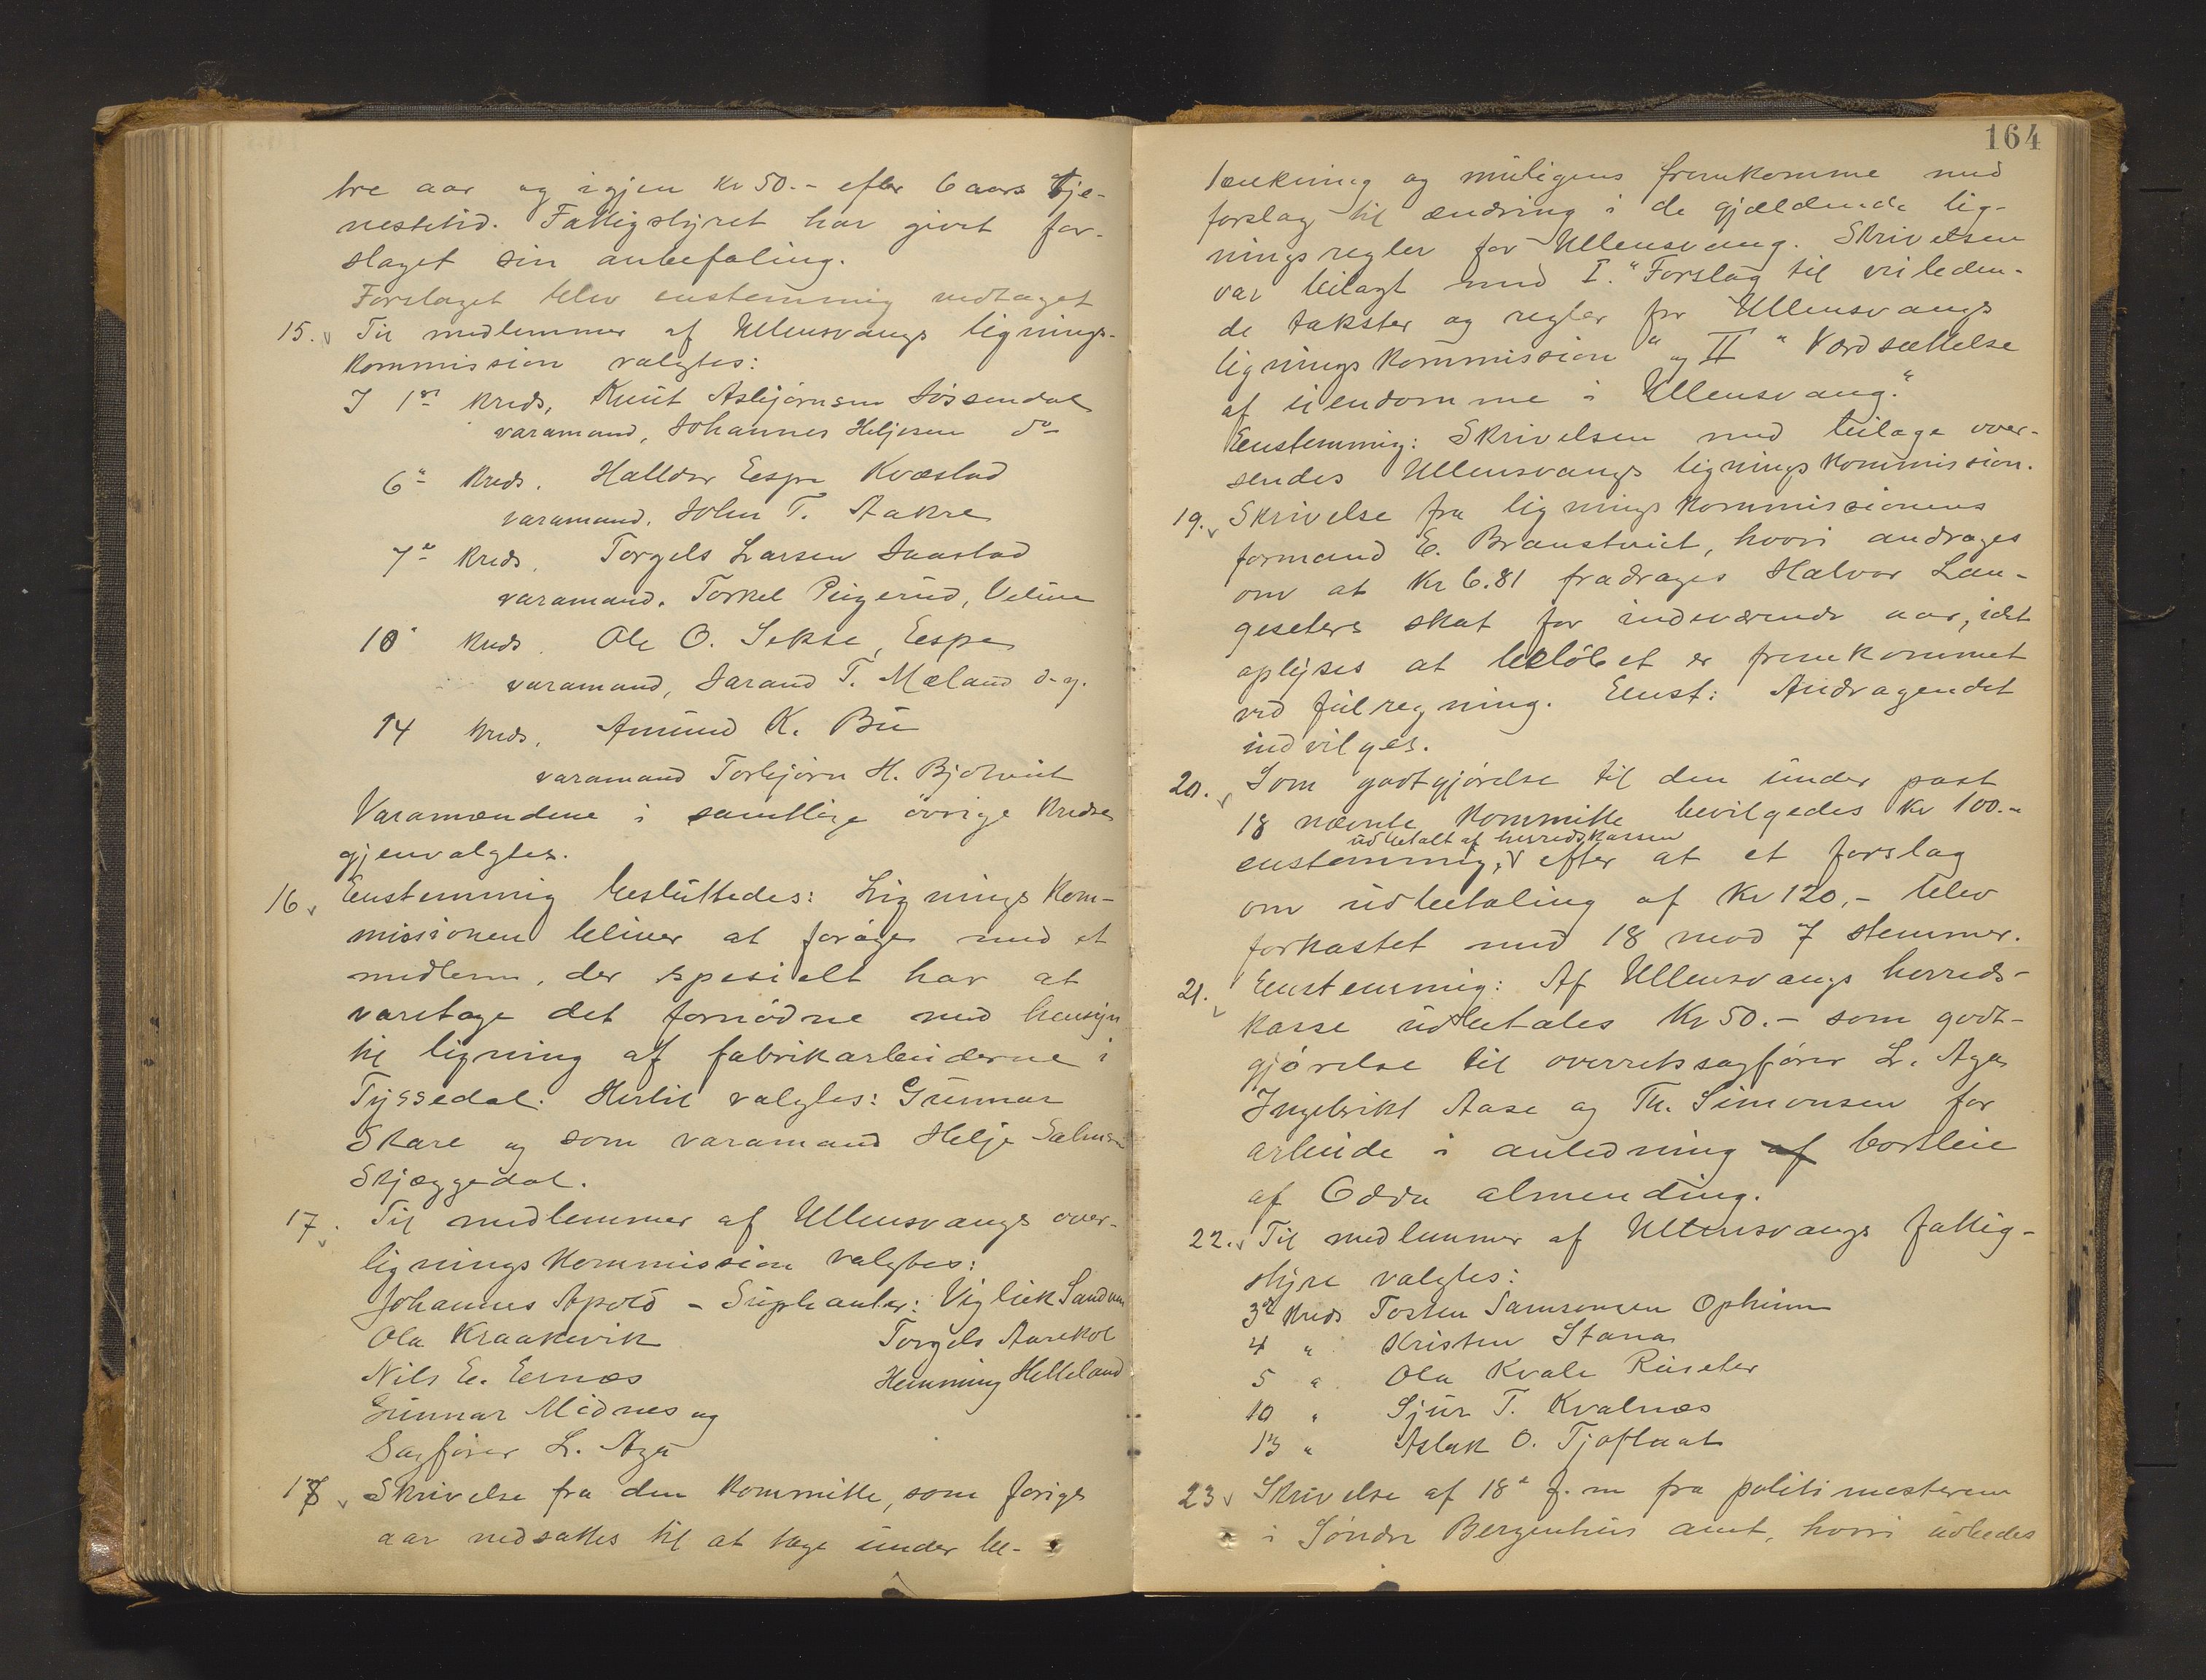 tre aar og igjen kr 50.- efter 6 aars tje-
nestetid. Fattigstyret har givet for-
slaget sin anbefaling.
Forslaget blev enstemmig vedtaget
15. Til medlemmer af Ullensvangs lignings-
kommission valgtes:
I 1ste kreds, Knut Asbjørnsen Jøssendal
varamand, Johannes Heljesen do
6te kreds. Halldor Eespe Kvæstad
varamand. John T. Aakre
7de kreds. Torgels Larsen Jaastad
varamand. Torkel Pügerud, Velure
10de kreds. Ole O. Sekse, Eespe
varamand, Jarand T. Mæland d.y.
14 kreds. Amund K. Bu
varamand Torbjørn H. Bjotveit
Varamændene i samtlige øvrige kredse
gjenvalgtes.
16. Eenstemmig besluttedes: Lignings kom-
missionen bliver at forøge med et
medlem, der spesielt har at
varetage det fornødne med hensyn
til ligning af fabrikarbeiderne i
Tyssedal. Hertil valgtes: Gunnar
Skare og som varamand Helje Salmsen
Skjæggedal.
17. Til medlemmer af Ullensvangs over-
ligningskommission valgtes:
Johannes Apold - Supleanter: Vigleik Sandven
Ola Kraakevik Torgels Aarekol
Nils E. Eernæs Henning Helleland
Gunnar Midnes og
Sagfører L. Aga
18 Skrivelse fra den kommitte, som forige
aar nedsattes til at tage under be-
164
tænkning og muligens fremkomme med
forslag til ændring i de gjældende lig-
ningsregler for Ullensvang. Skrivelsen
var bilagt med I. "Forslag til veileden-
de takster og regler for Ullensvangs
ligningskommission" og II "Værdsættelse
af eiendomme i Ullensvang."
Eenstemmig: Skrivelsen med bilage over-
sendes Ullensvangs ligningskommission.
19. Skrivelse fra ligningskommissionens
formand E. Branstveit, hvori andrages
om at kr 6.81 fradrages Halvor Lan-
geseters skat for indeværende aar, idet
oplyses at beløbet er fremkommet
ved feilregning. Eenst: Andragendet
indvilges.
20. Som godtgjørelse til den under post
18 nævnte kommitte bevilgedes kr 100.-
udbetalt af herredskassen
enstemmig, efter at et forslag
om udbetaling af kr 120,- blev
forkastet med 18 mod 7 stemmer.
21. Eenstemmig: Af Ullensvangs herreds-
kasse udbetales kr 50.- som godt-
gjørelse til overretssagfører L. Aga
Ingebrikt Aase og Th. Simonsen for
arbeide i anledning af bortleie
af Odda almending.
22. Til medlemmer af Ullensvangs fattig-
styre valgtes:
3die kreds Tosten Samsonsen Opheim
4 " Kristen Stana
5 " Ola Kvale Reiseter
10 " Sjur T. Kvalnæs
13 " Aslak O. Tjoflaat
23 Skrivelse af 18de f. m fra politimesteren
i Søndre Bergenhus amt, hvori udbedes